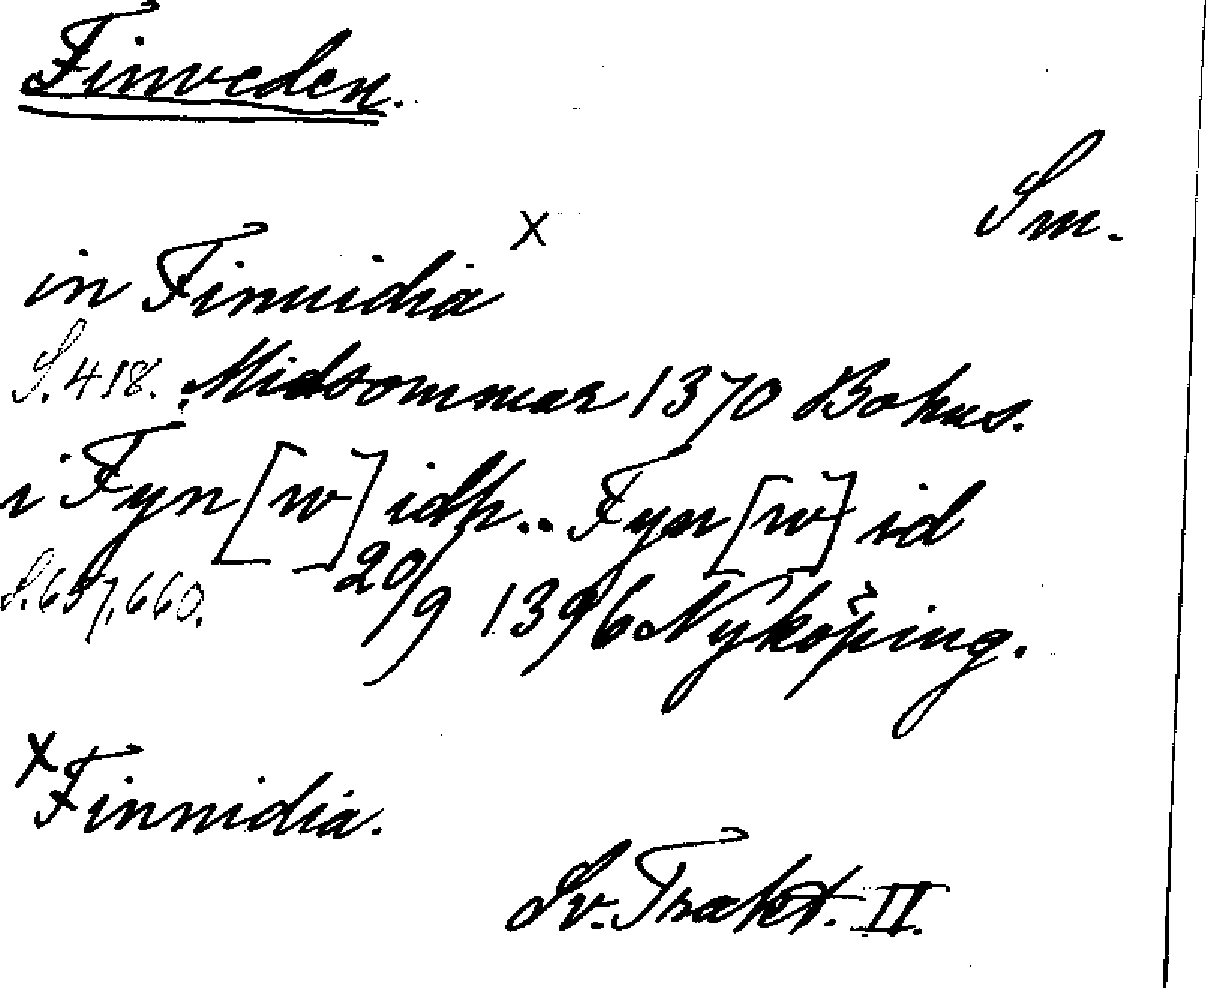 Finveden.
Sm.
in Finuidia x
S. 418. Midsommar 1370 Bohus.
i Fyn [w] idh.. Fyn [w] id
S. 657, 660. 20/9 1396 Nyköping.
x Finnidia.
Sv. Trakt. II.